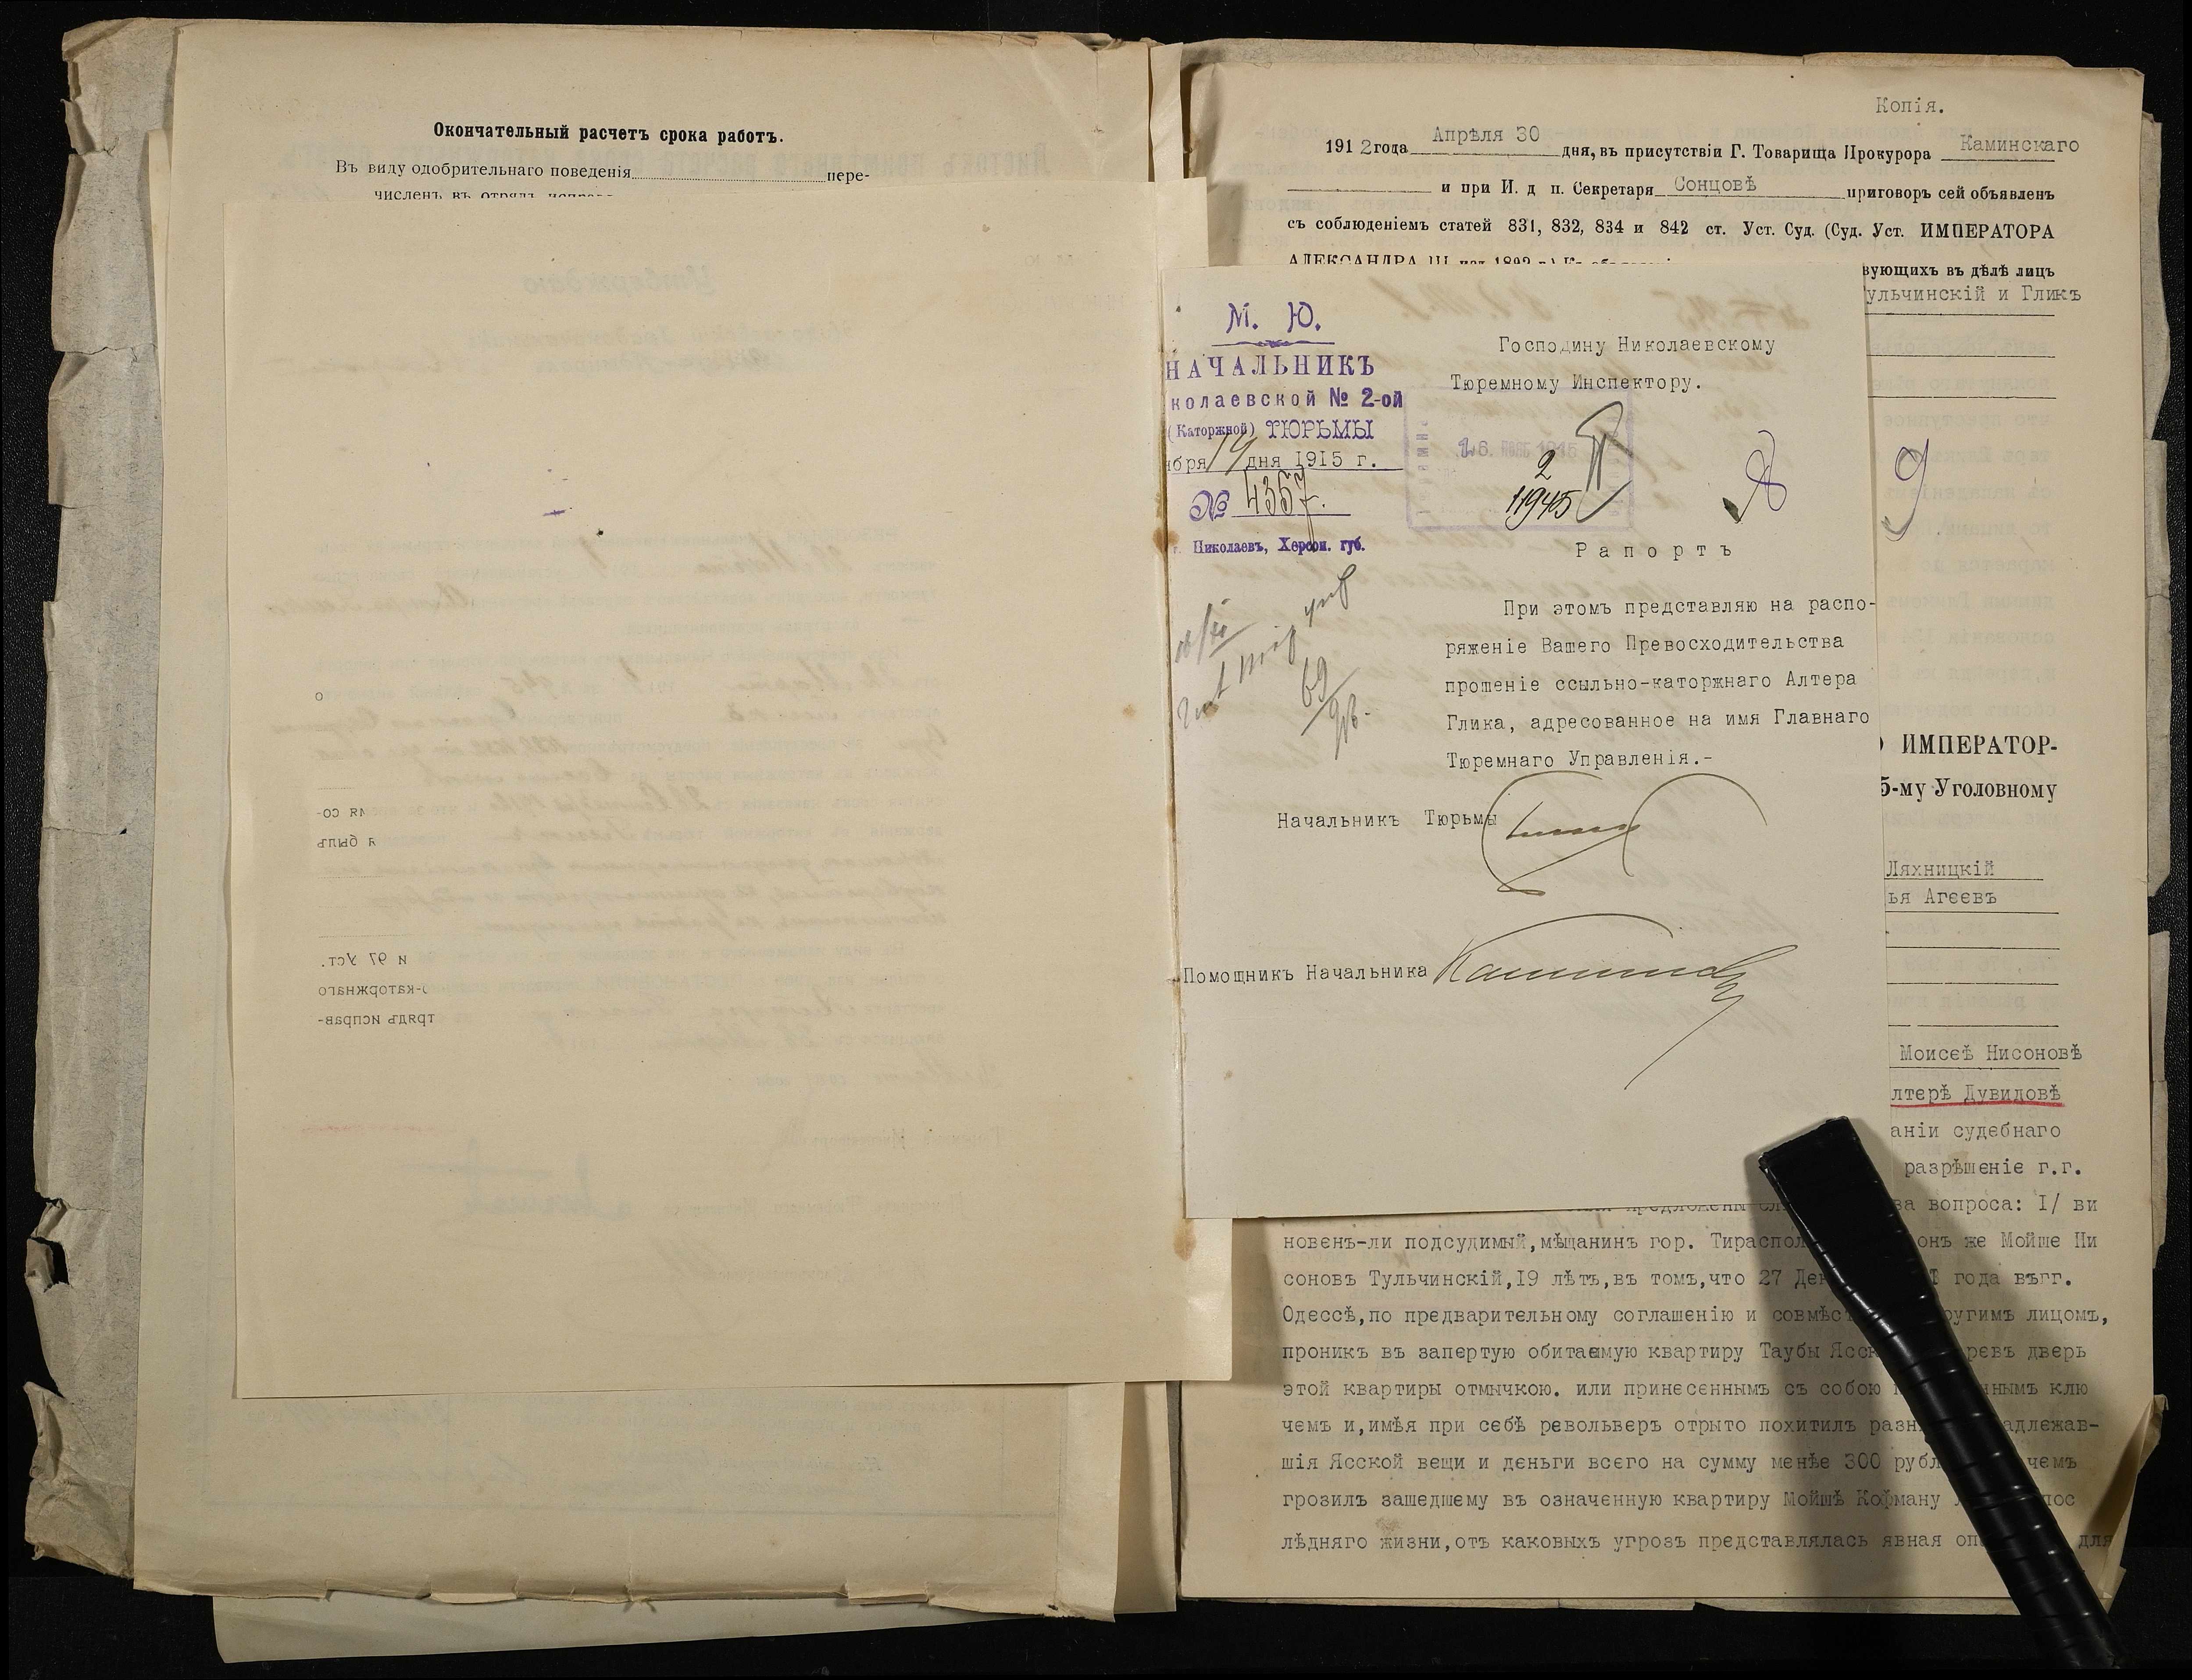 Окончательный расчетъ срока работъ.
Въ виду одобрительнаго поведенія пере-
численъ въ отрядъ
о
ия со-
я былъ
и 97 Уст.
о-каторжнаго
трядъ исправ-
Копія.
1912 года Апрѣля 30 дня, въ присутствіи Г. Товарища Прокурора Каминскаго
и при И. д п. Секретаря Сонцовѣ приговоръ сей объявленъ
съ соблюденіемъ статей 831, 832, 834 и 842 ст. Уст. Суд. (Суд. Уст. ИМПЕРАТОРА
АЛЕКСАНДРА III изд. 1892 г.)
вующихъ въ дѣлѣ лицъ
ульчинскій и Гликъ
М. Ю.
НАЧАЛЬНИКЪ
колаевской № 2-ой
(Каторжной) ТЮРЬМЫ
ября 19 дня 1915 г.
№ 4367.
г. Николаевъ, Херсон. губ.
Господину Николаевскому
Тюремному Инспектору.
26. НОЯБ 1915
2
11945
8
9
Рапортъ
При этомъ представляю на распо-
ряженіе Вашего Превосходительства
прошеніе ссыльно-каторжнаго Алтера
Глика, адресованное на имя Главнаго
Тюремнаго Управленія.-
Начальникъ Тюрьмы
Помощникъ Начальника
69
ИМПЕРАТОР-
5-му Уголовному
Ляхницкій
ья Агеевъ
Моисеѣ Нисоновѣ
лтерѣ Дувидовѣ
аніи судебнаго
разрѣшеніе г.г.
предложены ва вопроса: I/ ви
новенъ-ли подсудимый,мѣщанинъ гор. Тираспол онъ же Мойше Ни
соновъ Тульчинскій,I9 лѣтъ,въ томъ,что 27 Дек I года въгг.
Одессѣ,по предварительному соглашенію и совмѣс ругимъ лицомъ,
проникъ въ запертую обитаемую квартиру Таубы Ясск ревъ дверь
этой квартиры отмычкою. или принесеннымъ съ собою ннымъ клю
чемъ и,имѣя при себѣ револьверъ отрыто похитилъ разн адлежав-
шія Ясской вещи и деньги всего на сумму менѣе 300 рубл чемъ
грозилъ зашедшему въ означенную квартиру Мойшѣ Кофману пос
лѣдняго жизни,отъ каковыхъ угрозъ представлялась явная опа для